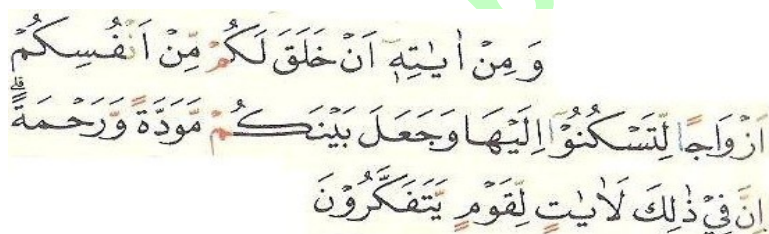 وَ مِنْ اٰيٰتِهٖۤ اَنْ خَلَقَ لَكُمْ مِّنْ اَنْفُسِكُمْ
اَزْوَاجًا لِّتَسْكُنُوْۤا اِلَيْهَا وَجَعَلَ بَيْنَكُمْ مَّوَدَّةً وَّرَحْمَةً ؕ
اِنَّ فِيْ ذٰلِكَ لَاٰيٰتٍ لِّقَوْمٍ يَّتَفَكَّرُوْنَ